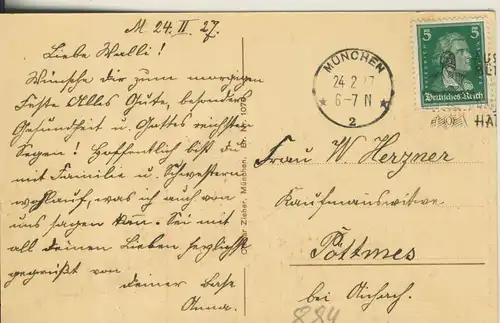 M 24. II. 27.
Liebe Walli!
Wünsche dir zum morgigen
Feste Alles Gute, besonders
Gesundheit u. Gottes reichsten
Segen! Hoffentlich bist du
mit Familie u. Schwestern
wohlauf, was ich auch von
uns sagen kann. Sei mit
all deinen Lieben herzlichst
gegrüßt von
deiner Base
Anna.
Ottmar Zieher, München. Br. Nr. 1079
MÜNCHEN
24.2.27
6-7 N
2
5 5
Deutsches Reich
HAT
Frau W Herzner
Kaufmannswitwe
Pöttmes
bei Aichach.
884